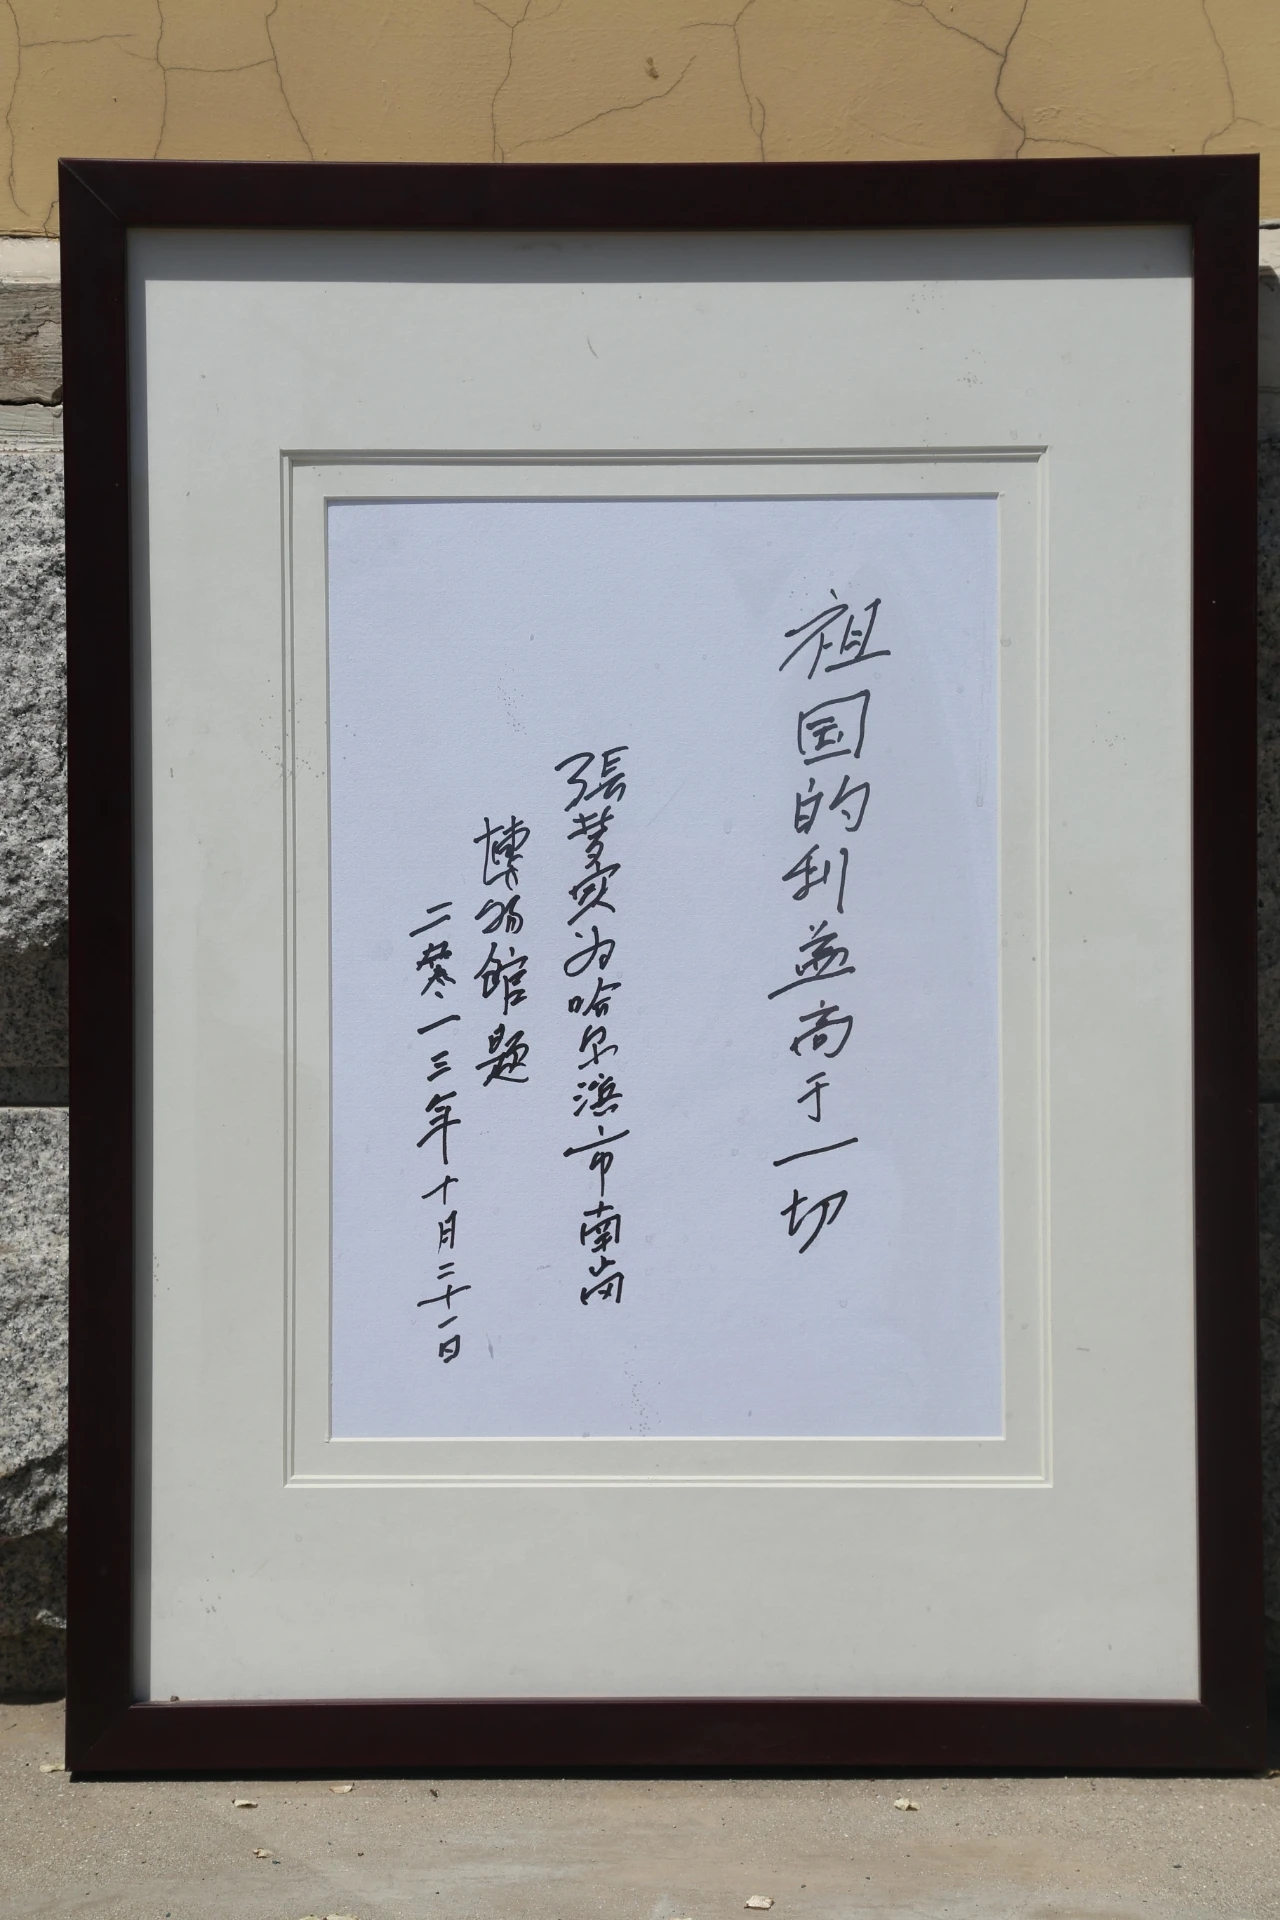 祖国的利益高于一切
張梦实为哈尔滨市南岗
博物館题
二零一三年十月二十一日